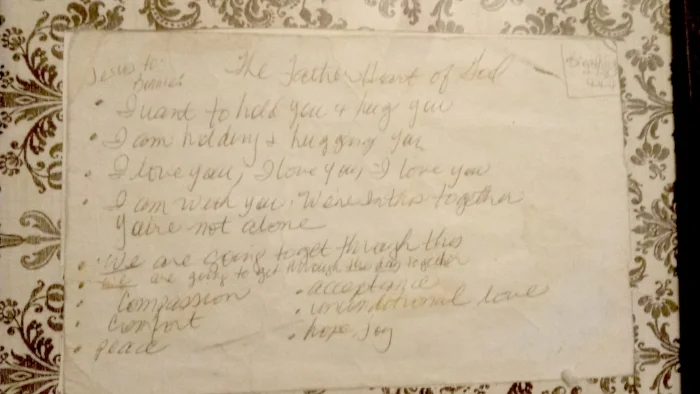 Jesus to
The Father Heart of God
• I want to hold you + hug you
• I am holding + hugging you
• I love you, I love you, I love you
• I am with you. We're in this together
You're not alone
• We are going to get through this
• We are going to get through this day together
• Compassion
• Comfort
• peace
• acceptance
• unconditional love
• hope, joy